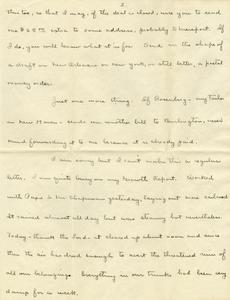 2
this too, so that I may, if the deal is closed, wire you to send
me $25.00 extra to some address, probably Davenport. If
I do, you will know what its for. Send in the shape of
a draft on New Orleans or New York, or still better, a postal
money order.
Just one more thing. If Rosenberg - my tailor
in New Haven - sends me another bill to Burlington, never
mind forwarding it to me because it is already paid.
I am sorry but I can't make this a regular
letter. I am quite busy on my Month Report. Worked
with Page in his Chapman yesterday, laying out were
It rained almost all day but was steamy but nevertheless.
Today - thanks the Lord - it cleared up about noon and since
then the air has dried enough to avert the threatened ruin of
all our belongings. Everything in our trunks had been very
damp for a week.